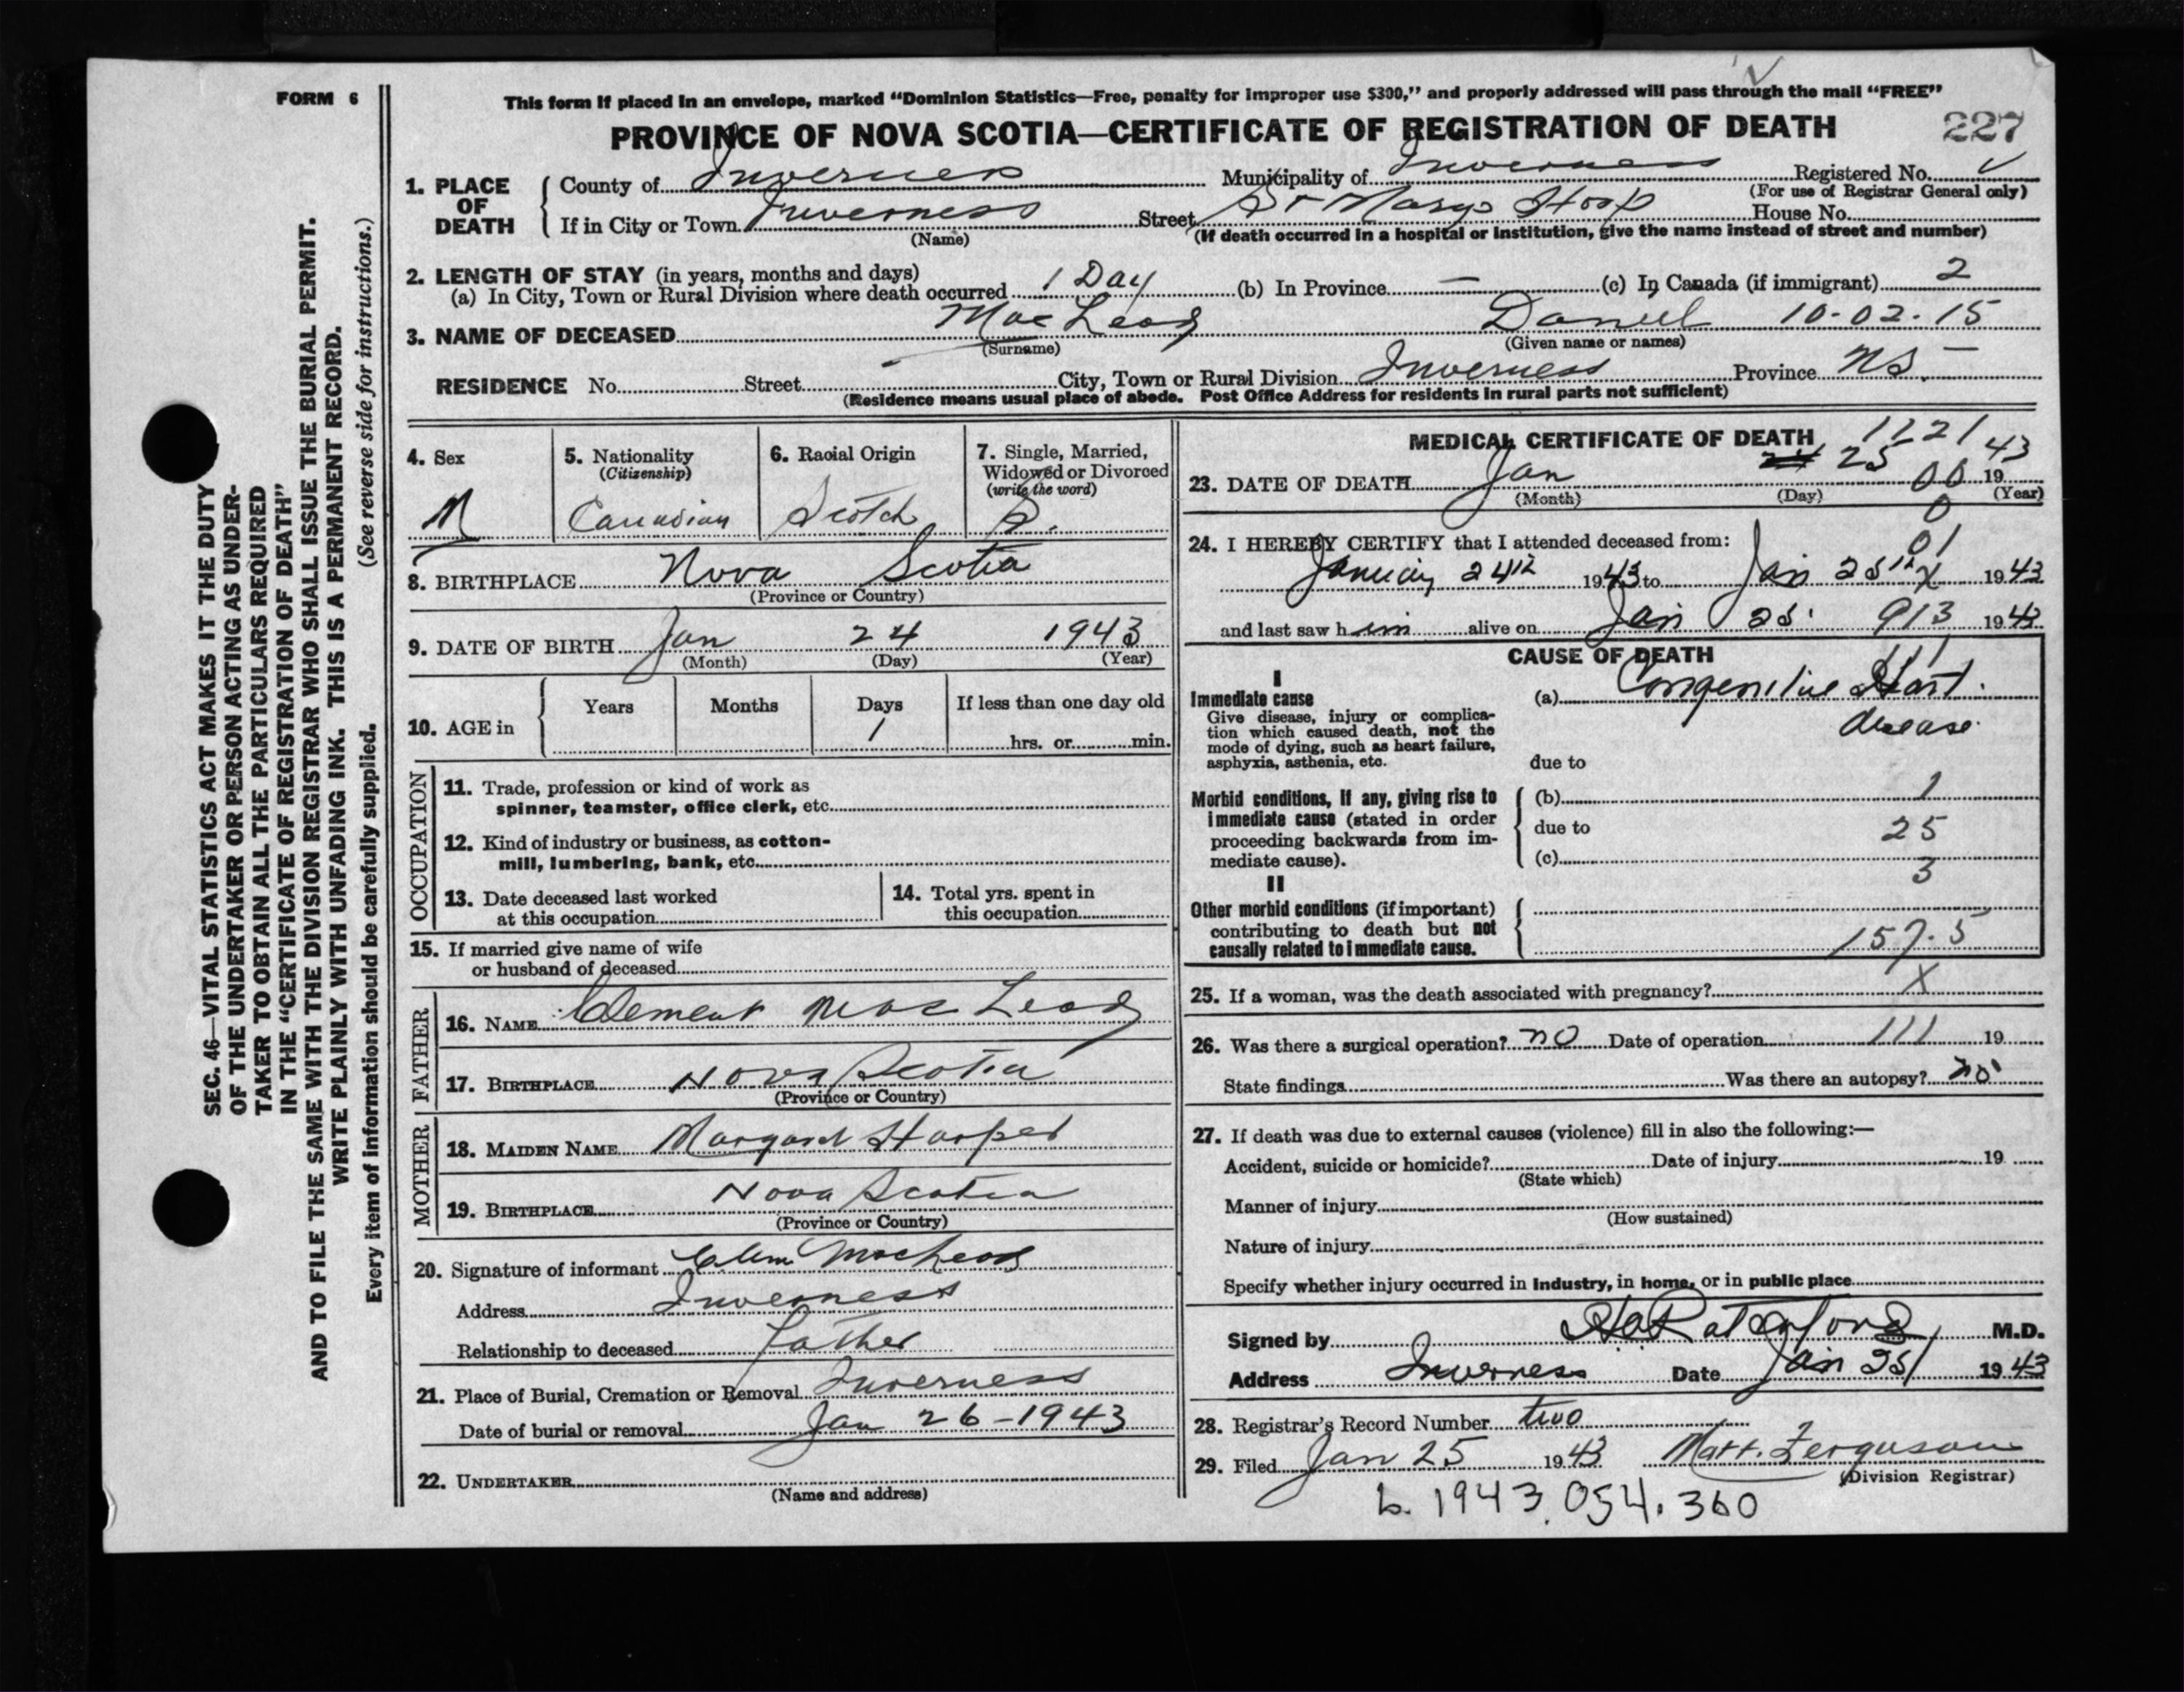 FORM 6
This form if placed in an envelope, marked "Dominion Statistics—Free, penalty for improper use $300," and properly addressed will pass through the mail "FREE"
PROVINCE OF NOVA SCOTIA—CERTIFICATE OF REGISTRATION OF DEATH 227
1. PLACE OF DEATH
County of Inverness Municipality of Inverness Registered No.
(For use of Registrar General only)
If in City or Town Inverness Street St Marys Hosp House No.
(Name) (If death occurred in a hospital or institution, give the name instead of street and number)
2. LENGTH OF STAY (in years, months and days)
(a) In City, Town or Rural Division where death occurred 1 Day (b) In Province — (c) In Canada (if immigrant) 2
3. NAME OF DECEASED Mac Leod Daniel 10-02-15
(Surname) (Given name or names)
RESIDENCE No. Street City, Town or Rural Division Inverness Province NS
(Residence means usual place of abode. Post Office Address for residents in rural parts not sufficient)
4. Sex 5. Nationality 6. Racial Origin 7. Single, Married,
(Citizenship) Widowed or Divorced
(write the word)
M Canadian Scotch S.
8. BIRTHPLACE Nova Scotia
(Province or Country)
9. DATE OF BIRTH Jan 24 1943
(Month) (Day) (Year)
10. AGE in Years Months Days If less than one day old
1 hrs. or min.
OCCUPATION
11. Trade, profession or kind of work as
spinner, teamster, office clerk, etc.
12. Kind of industry or business, as cotton-
mill, lumbering, bank, etc.
13. Date deceased last worked 14. Total yrs. spent in
at this occupation this occupation
15. If married give name of wife
or husband of deceased
FATHER
16. NAME Clement Mac Leod
17. BIRTHPLACE Nova Scotia
(Province or Country)
MOTHER
18. MAIDEN NAME Margaret Harper
19. BIRTHPLACE Nova Scotia
(Province or Country)
20. Signature of informant Clem MacLeod
Address Inverness
Relationship to deceased Father
21. Place of Burial, Cremation or Removal Inverness
Date of burial or removal Jan 26-1943
22. UNDERTAKER
(Name and address)
MEDICAL CERTIFICATE OF DEATH 1121
23. DATE OF DEATH Jan 25 00 1943
(Month) (Day) (Year)
0
24. I HEREBY CERTIFY that I attended deceased from: 01
January 24th 1943 to Jan 25th X 1943
and last saw him alive on Jan 25 913 1943
CAUSE OF DEATH
111
I
Immediate cause (a) Congenitive Heart
Give disease, injury or complica- disease
tion which caused death, not the
mode of dying, such as heart failure,
asphyxia, asthenia, etc. due to
Morbid conditions, if any, giving rise to (b) 1
immediate cause (stated in order due to 25
proceeding backwards from im-
mediate cause). (c) 3
II
Other morbid conditions (if important)
contributing to death but not
causally related to immediate cause. 157.5
25. If a woman, was the death associated with pregnancy? X
26. Was there a surgical operation? no Date of operation 111 19
State findings Was there an autopsy? no
27. If death was due to external causes (violence) fill in also the following:—
Accident, suicide or homicide? Date of injury 19
(State which)
Manner of injury
(How sustained)
Nature of injury
Specify whether injury occurred in industry, in home, or in public place
Signed by M.D.
Address Inverness Date Jan 25/ 1943
28. Registrar's Record Number two
29. Filed Jan 25 1943 Matt. Ferguson
(Division Registrar)
b. 1943.054.360
SEC. 46—VITAL STATISTICS ACT MAKES IT THE DUTY
OF THE UNDERTAKER OR PERSON ACTING AS UNDER-
TAKER TO OBTAIN ALL THE PARTICULARS REQUIRED
IN THE "CERTIFICATE OF REGISTRATION OF DEATH"
AND TO FILE THE SAME WITH THE DIVISION REGISTRAR WHO SHALL ISSUE THE BURIAL PERMIT.
WRITE PLAINLY WITH UNFADING INK. THIS IS A PERMANENT RECORD.
Every item of information should be carefully supplied. (See reverse side for instructions.)